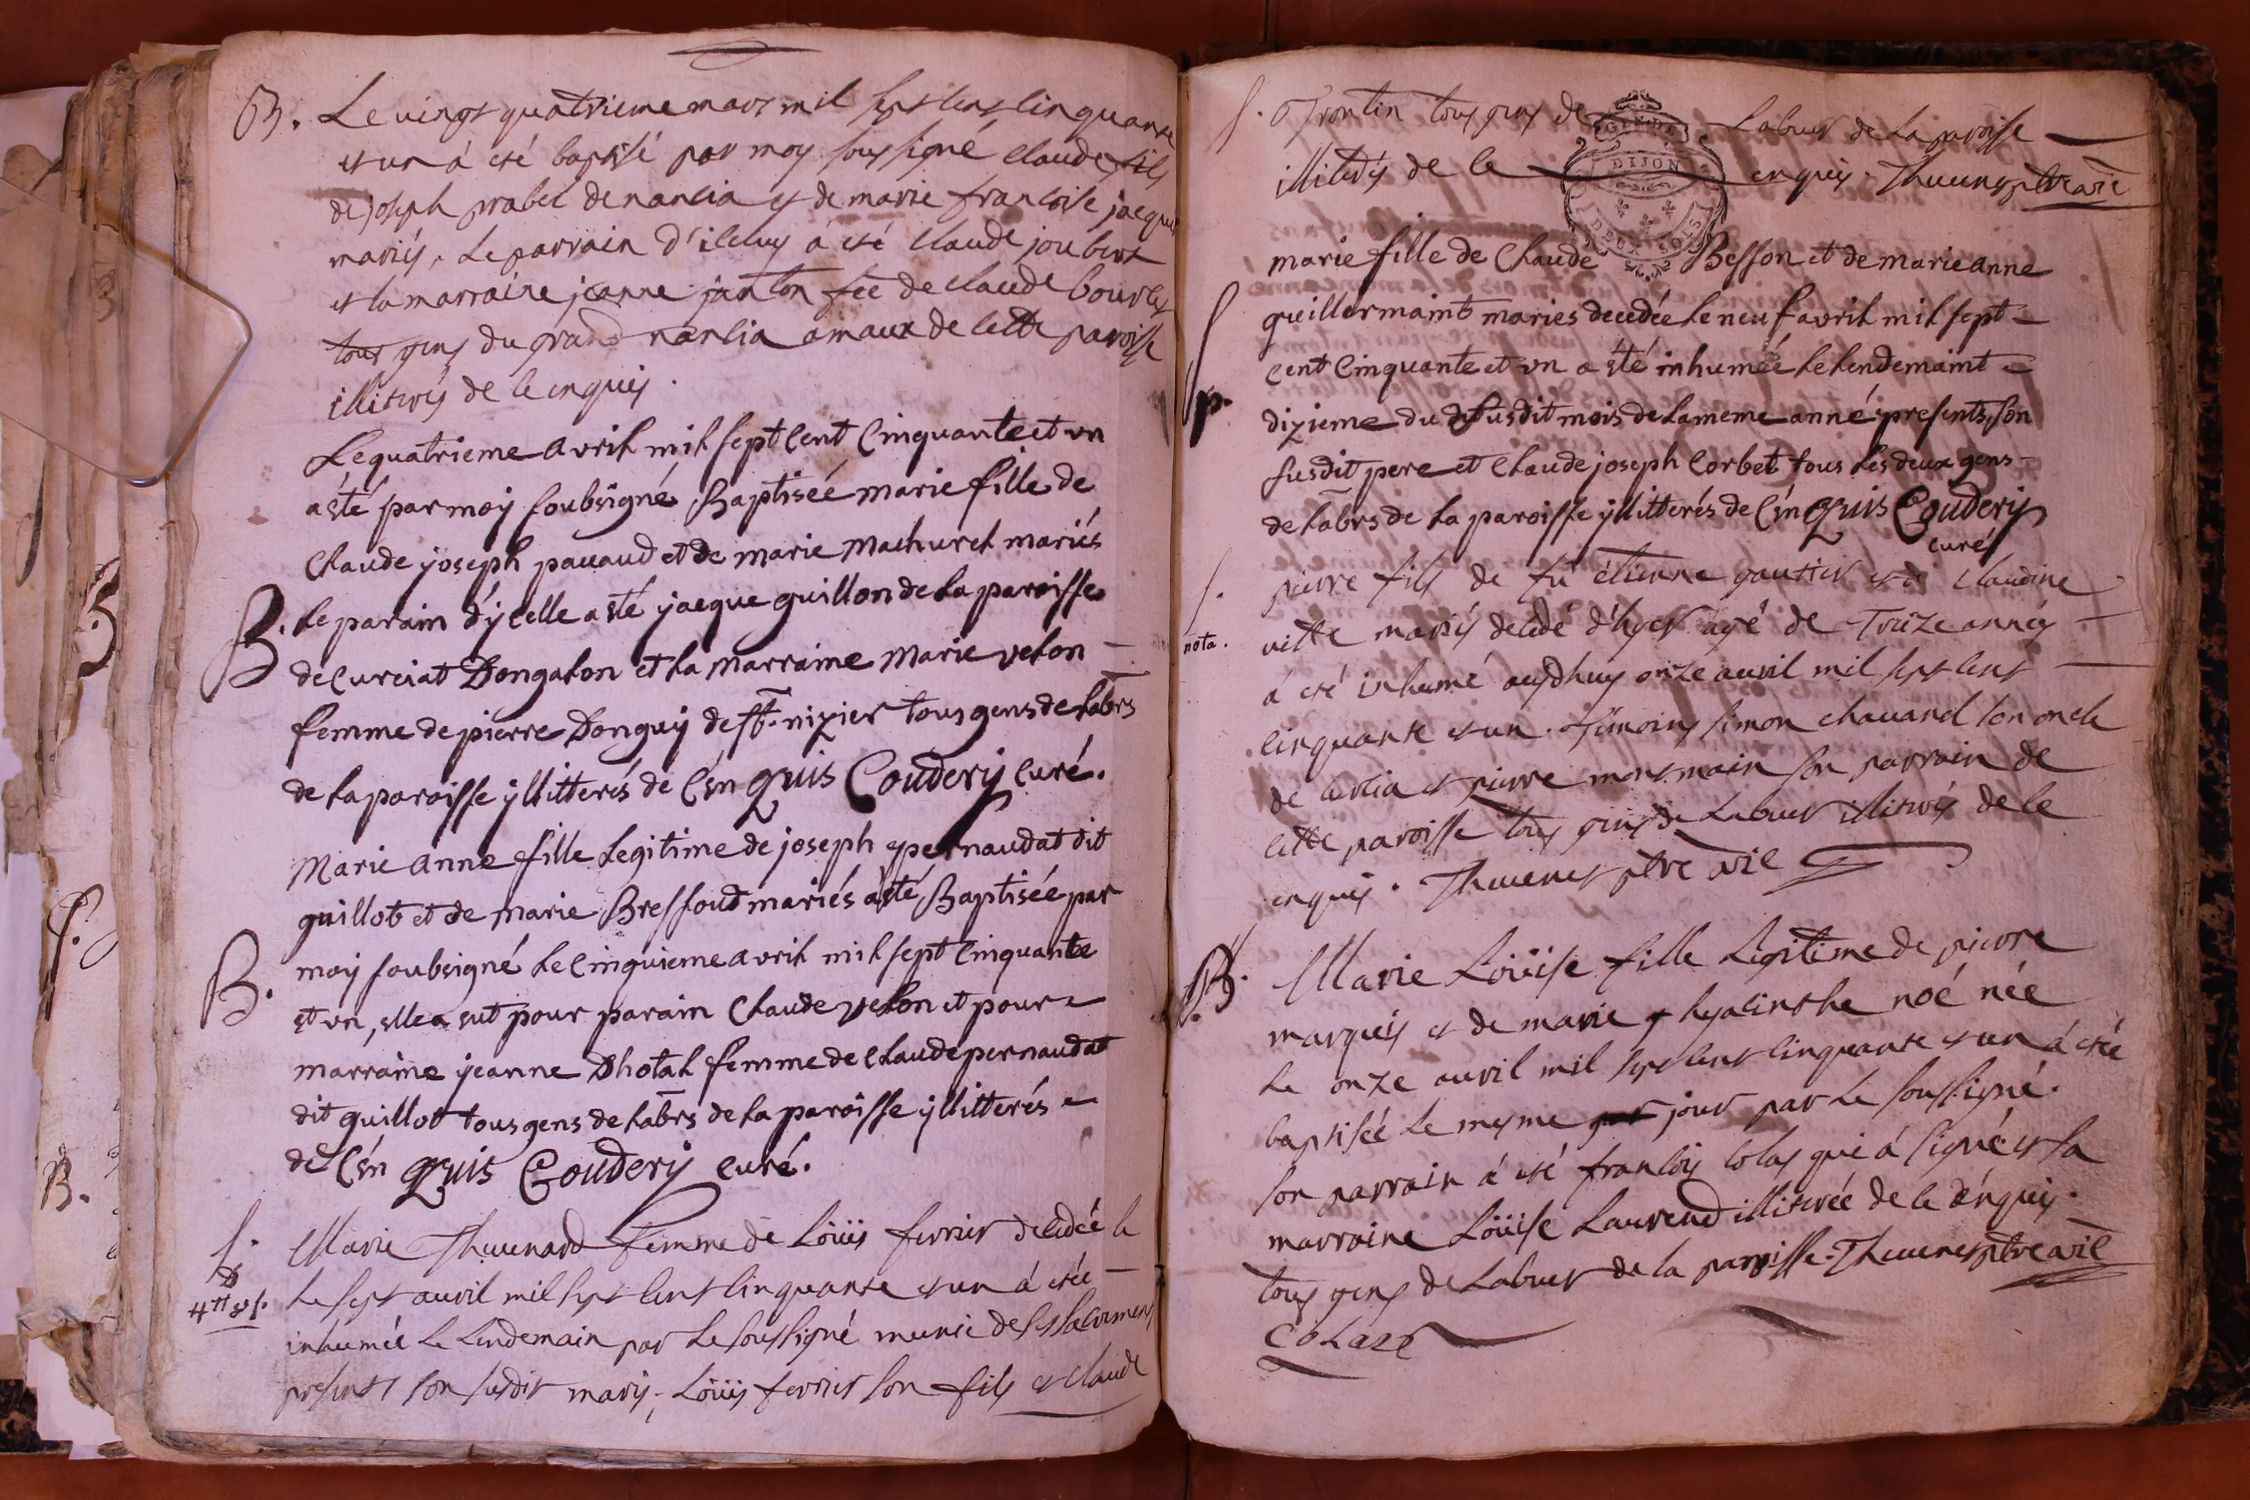 B. Le vingt quatrieme mars mil sept cent cinquante
et un á eté baptisé par moy soussigné claude fils
de joseph prabel de nancia et de marie francoise jacques
mariés, Le parrain d'iceluy á eté Claude joubert
et la marraine jeanne janton fée de claude bourley
tous gens du grand nanlia amaux de cette paroisse
illiterés de ce enquis.
Le quatrieme avril mil sept Cent Cinquante et un
a été par moÿ soubsigné Baptiseé marie fille de
Claude joseph pauaud et de marie Mathuret mariés
B. Le parain d'ÿcelle a sté jacque guillon de La paroisse
de Curciat Dongalon et La marraine Marie velon
femme de pierre Donguÿ de st. nizier tous gens de Labrs
de La paroisse ÿllitterés de Cén Quis Couderÿ Curé.
Marie Anne fille Legitime de joseph pernaudat dit
guillot et de marie Bressoud mariés a sté Baptisée par
B. moÿ soubsigné Le Cinquieme avril mil sept Cinquante
et un, elle a eut pour parain Claude velon et pour
marraine jeanne Dhotal femme de Claude pernaudat
dit guillot tous gens de Labrs de La paroisse ÿllitterés
de Cén Quis Couderÿ Curé.
S. Marie Thuuenard femme de Loüis ferrier decedée le
4tt Le sept auril mil sept cent cinquante et un á etée
inhumée Le Lendemain par Le soussigné munie de ses sacrements
presents son susdit mary, Loüis ferrier son fils et Claude
S. frontin tous gens de Labeur de La paroisse
illiterés de ce enquis. Thuuenet ptre vic
GEN. DE DIJON
DEUX SOLS
marie fille de Claude Besson et de marie anne
guillermaint maries decedée Le neuf avril mil sept
S. Cent Cinquante et un a été inhumée Le Lendemaint
p. dizieme du susdit mois de La meme année presents, son
susdit pere et Claude joseph Corbet tous Les deux gens
de Labrs de La paroisse ÿllitterés de Cén Quis Couderÿ
curé
S. pierre fils de fû étienne gautier et de Claudine
nota. vitte mariés decedé d'hyer agé de Treize années
á eté inhumé aujdhuy onze auril mil sept cent
cinquante et un. Témoins simon chauand son oncle
de et pierre montmain son parrain de
cette paroisse tous gens de Labeur illiterés de ce
enquis. Thuuenet ptre vic
B. Marie Loüise fille Legitime de pierre
marquis et de marie hyacinthe noé née
Le onze auril mil sept cent cinquante et un á etée
baptisée Le mesme jour par Le soussigné.
son parrain á eté francois colas qui á signé et sa
marraine Loüise Laurend illiterée de ce enquis.
tous gens de Labeur de la paroisse. Thuuenet ptre vic
COLAZ